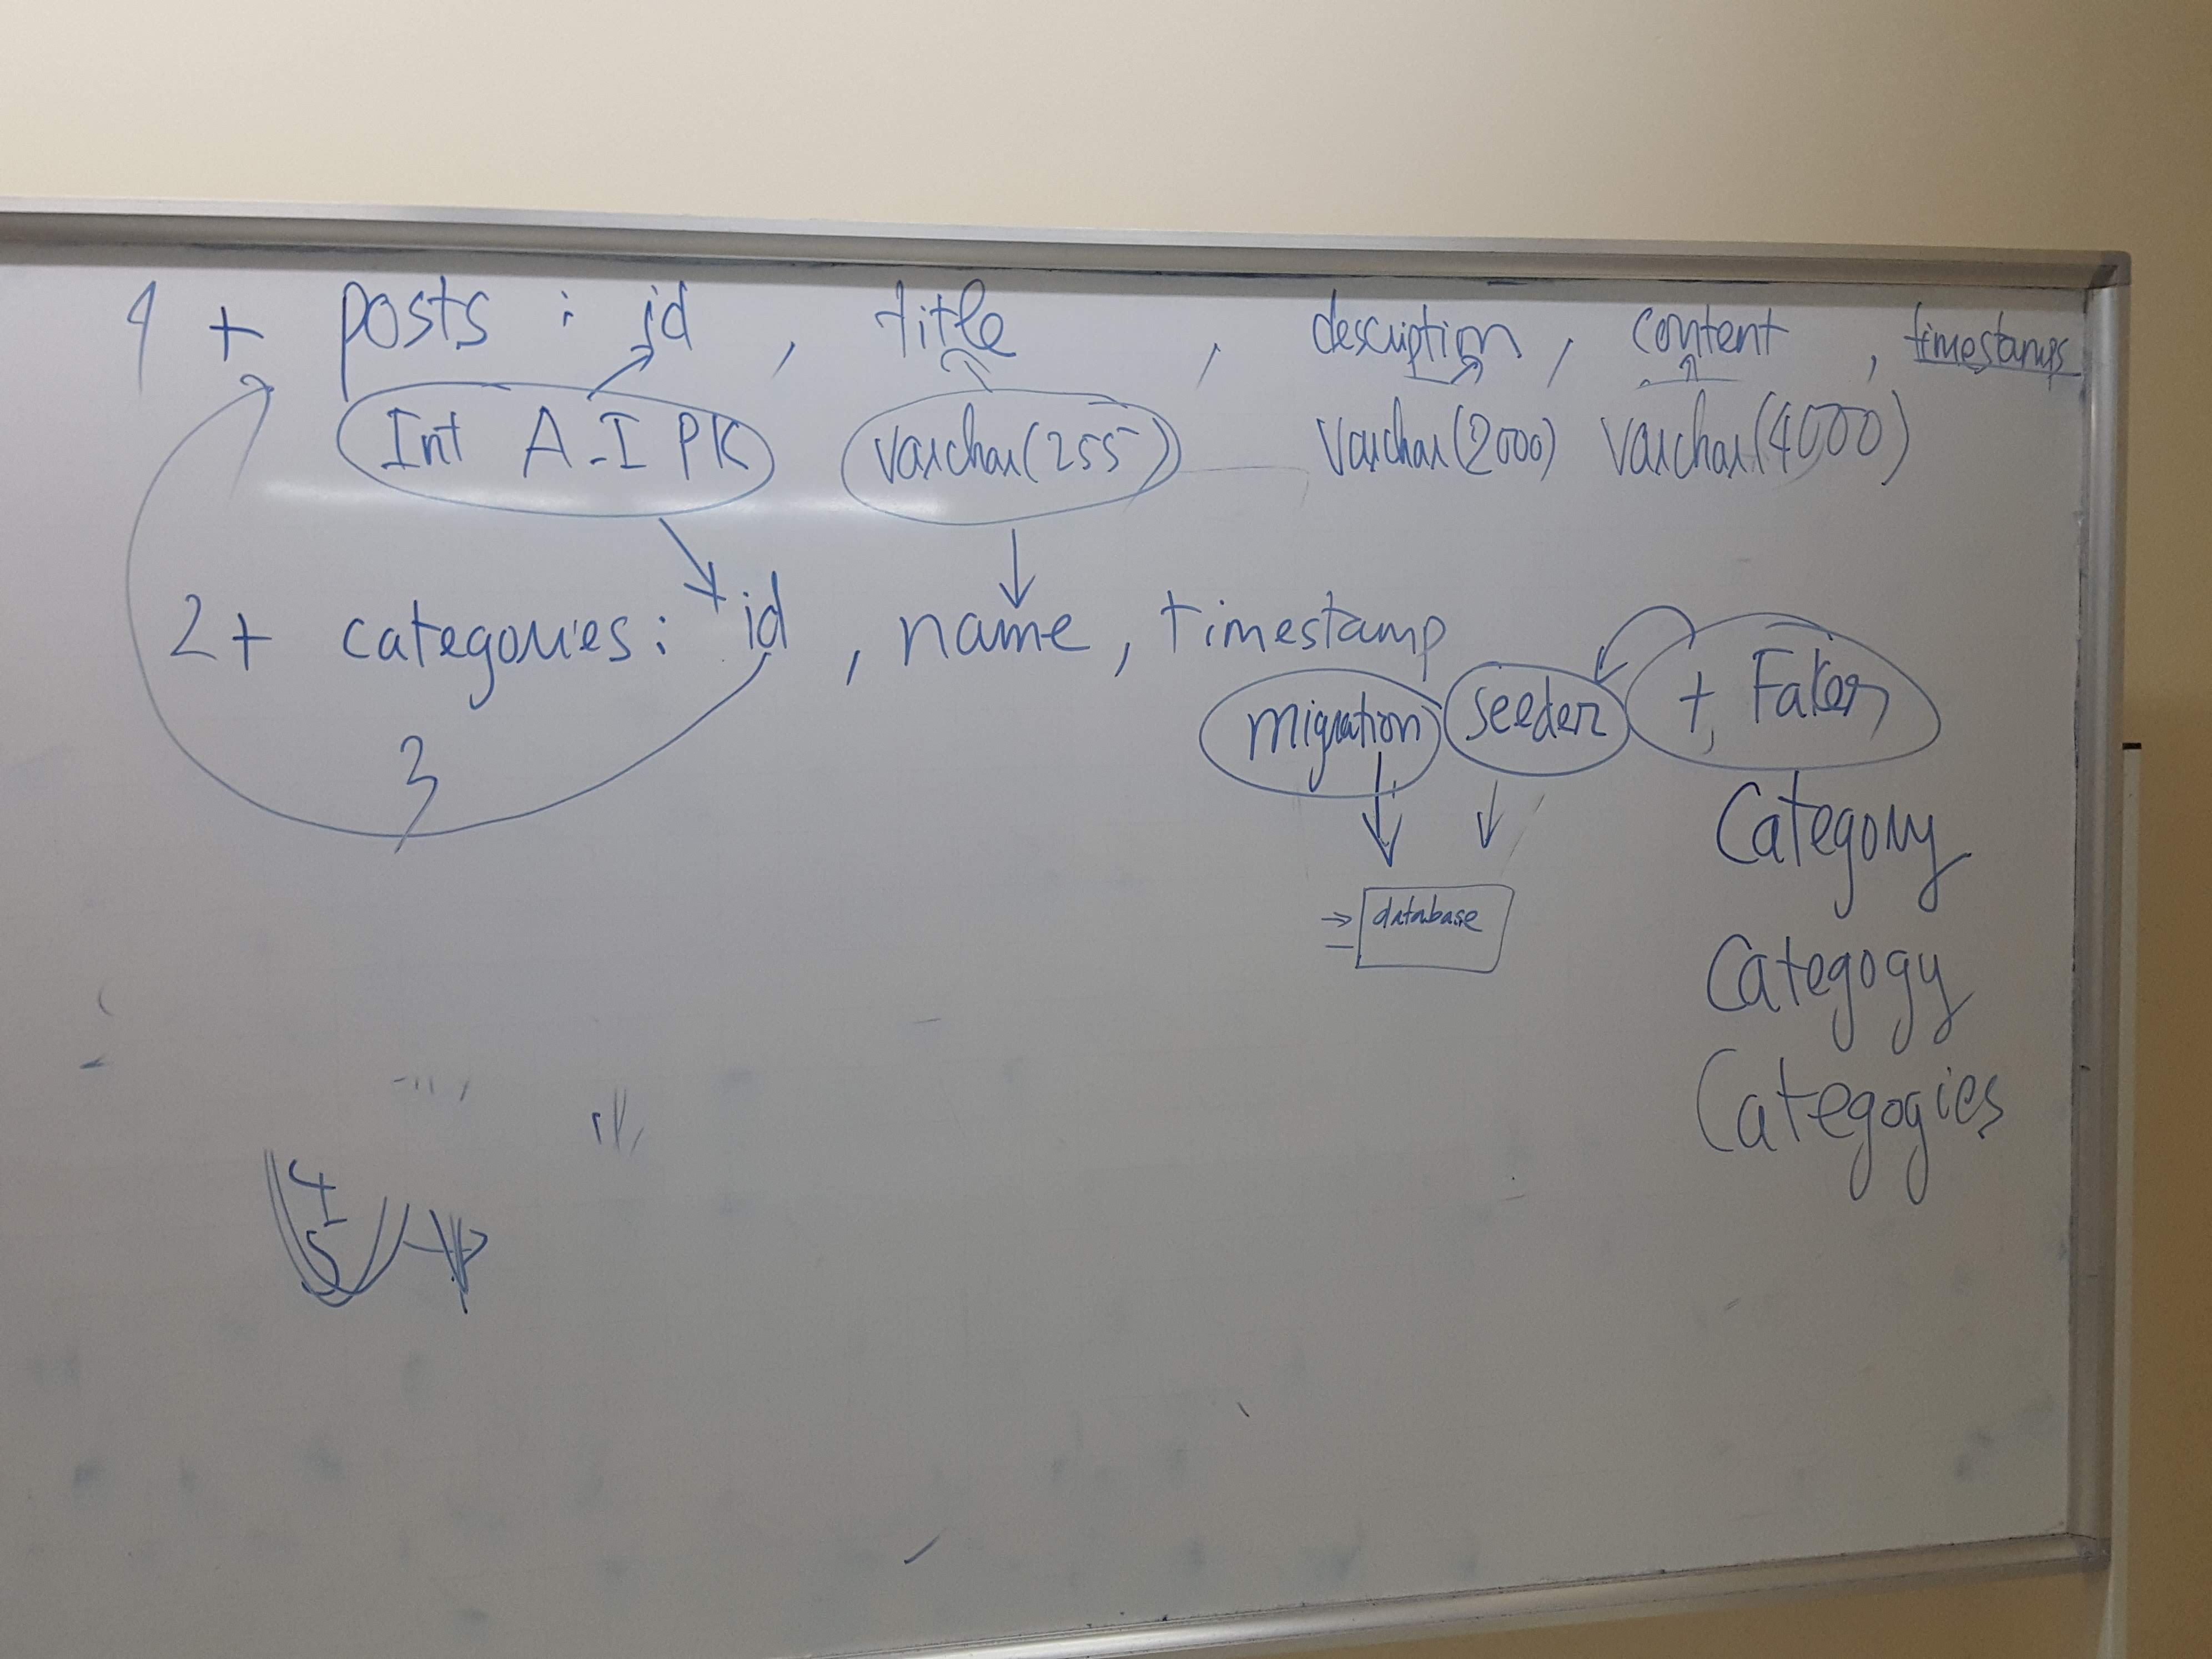 1 + posts : id , title , description , content , timestamps
Int A.I PK varchar(255) varchar(2000) varchar(4000)
2 + categories : id , name , timestamp
migration seeder + Faker
3
database
Category
Categogy
Categogies
4
5